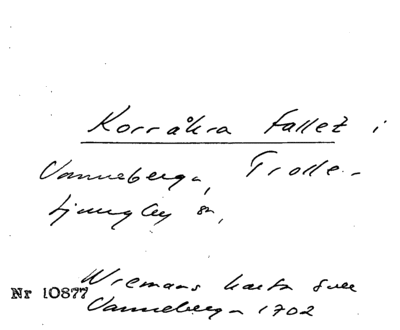 Korråkra fallet i
Vanneberga, Trolle-
Ljungby sn,
Wremans karta över
Nr 10877
Vanneberga 1702